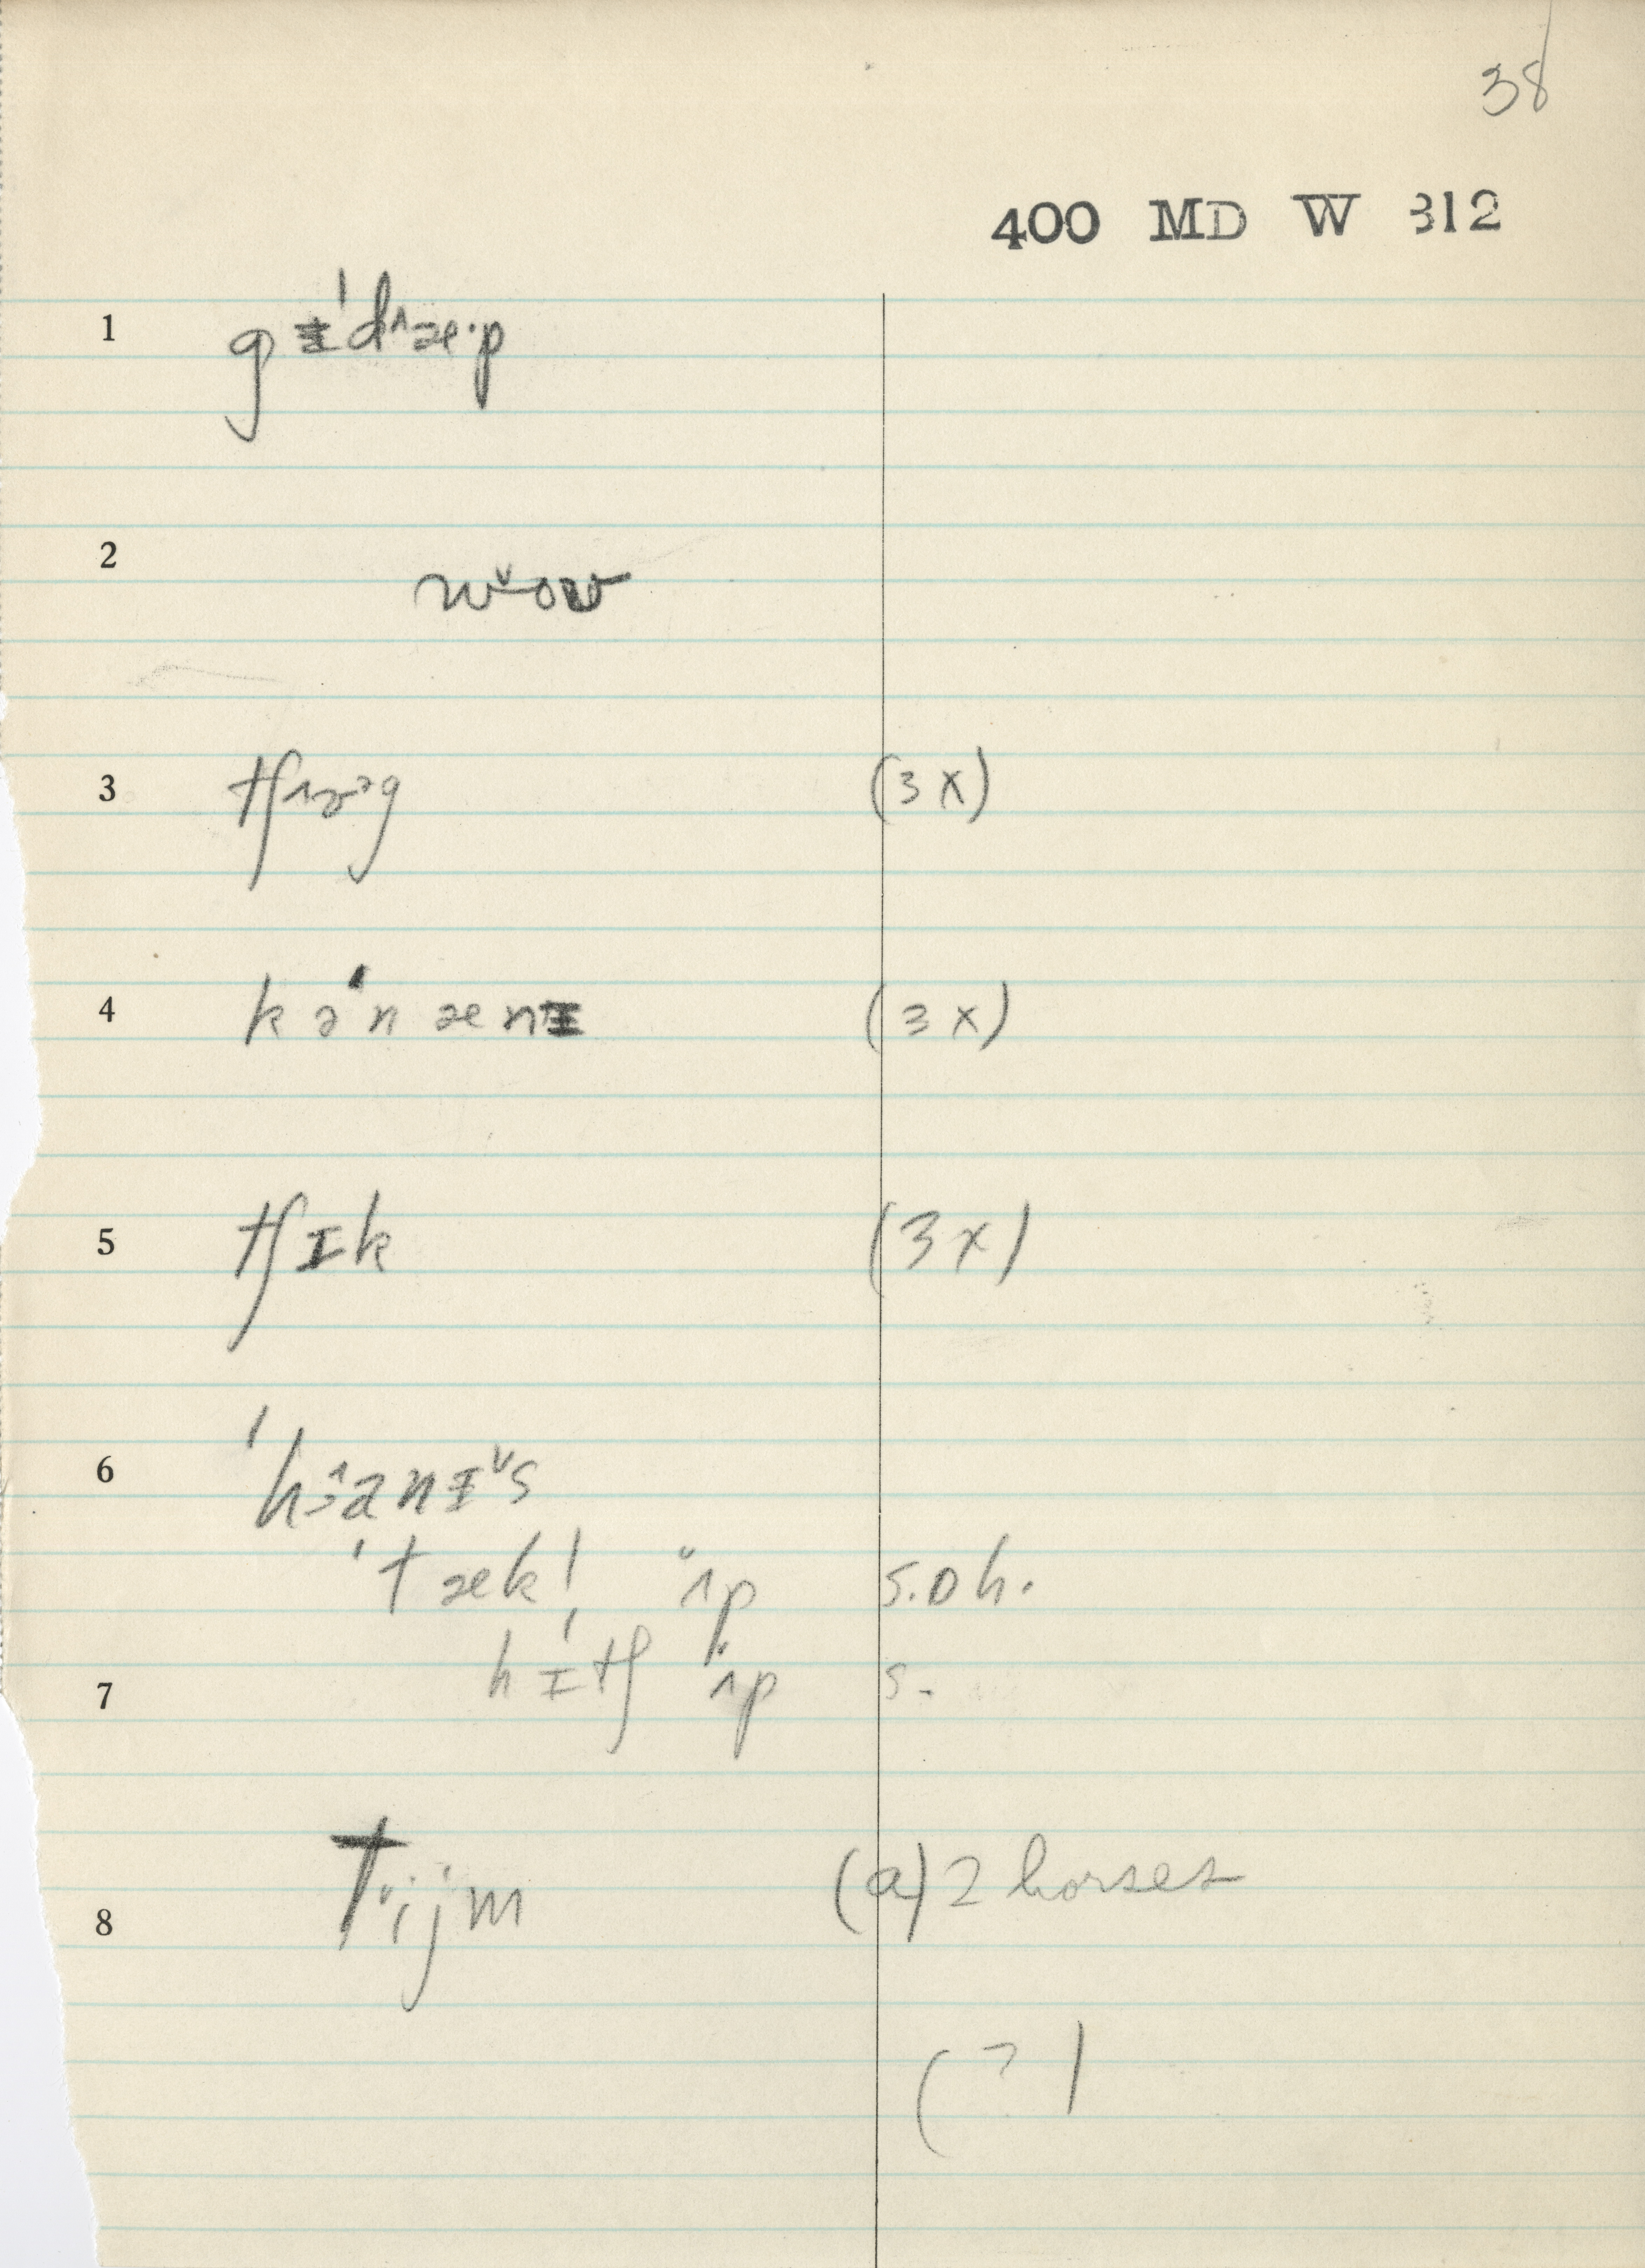 38
400 MD W 312
1 gɨˈd˄æ·p
2 w˅ow
3 tʃ˄ɚ˃g (3x)
4 kəˈnænɨ (3x)
5 tʃɪk (3x)
6 ˈhanɨ˅s
ˈtæk! ˄p s.o h.
7 hɪtʃ ˄p s.
8 tijm (a) 2 horses
(? )